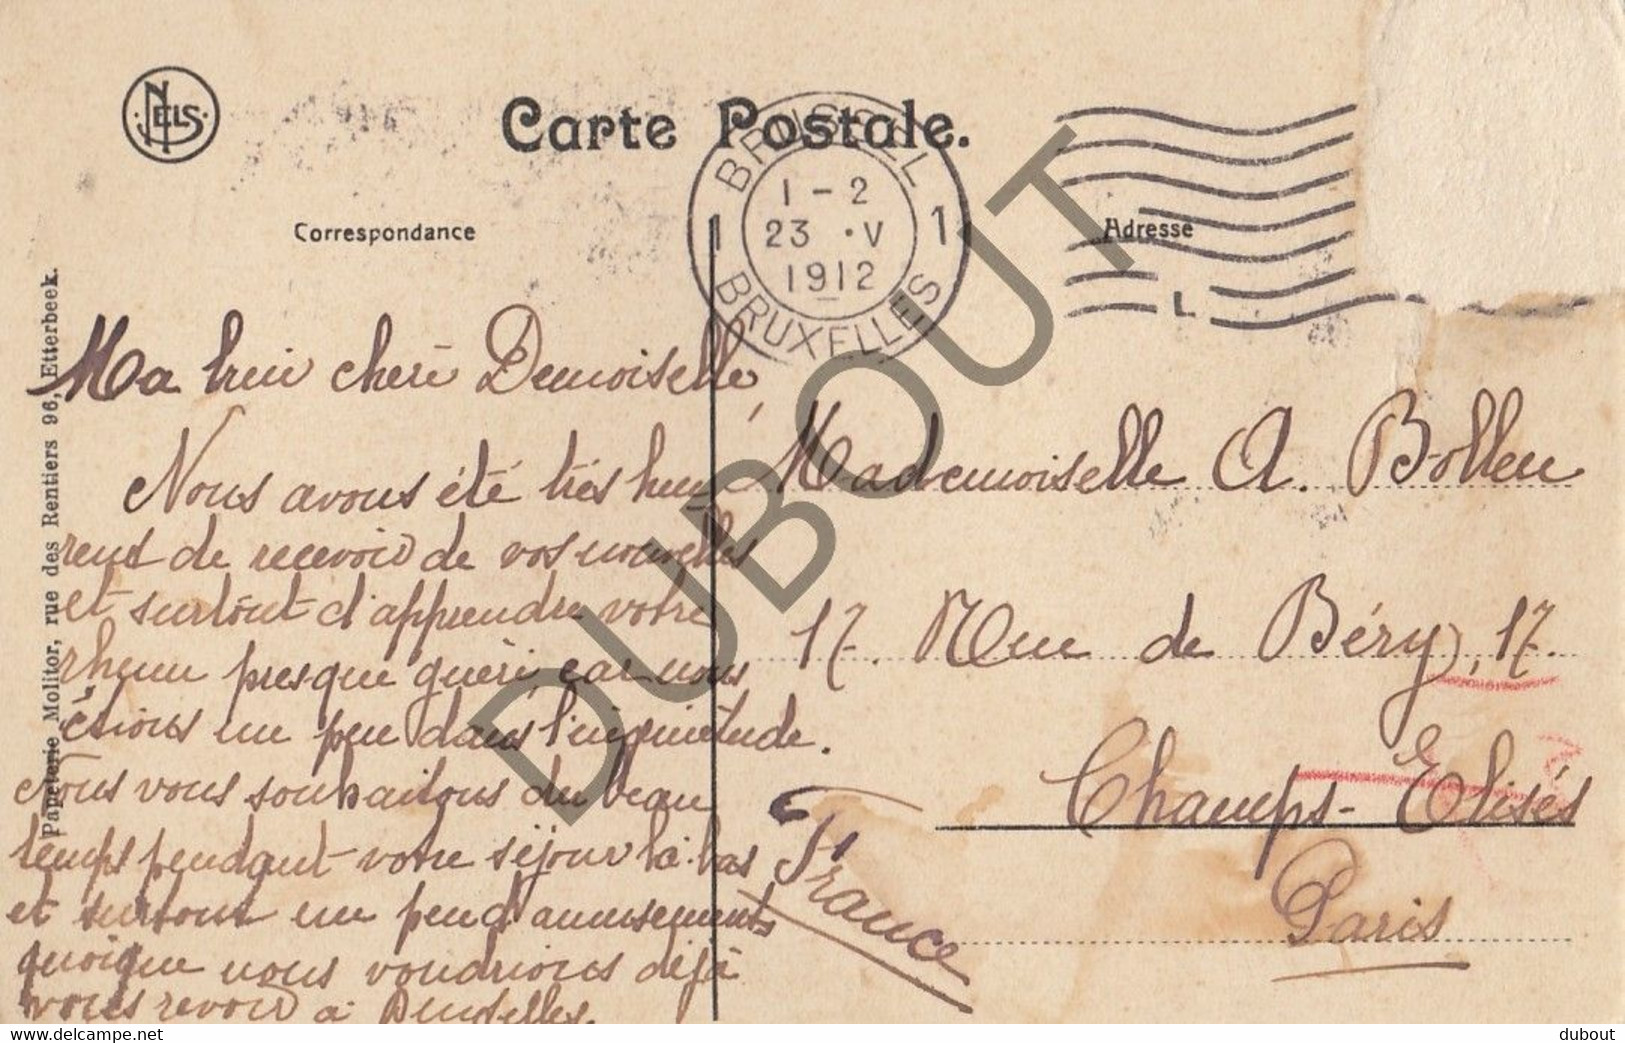 NELS
Carte Postale.
BRUSSEL
1 - 2
23 · V
1912
1 1
BRUXELLES
L
Correspondance
Adresse
Papeterie Molitor, rue des Rentiers 96, Etterbeek.
Ma bien chère Demoiselle,
Nous avons été très heu-
reus de recevoir de vos nouvelles
et surtout d'apprendre votre
rhum presque guéri, car nous
étions un peu dans l'inquiétude.
Nous vous souhaitons du beau
temps pendant votre séjour là-bas
et surtout un peu d'amusements
quoique nous voudrions déjà
vous revoir à Bruxelles.
Mademoiselle A. Bollen
17. Rue de Béry, 17.
Champs-Elisés
Paris
France
DUBOUT
dubout